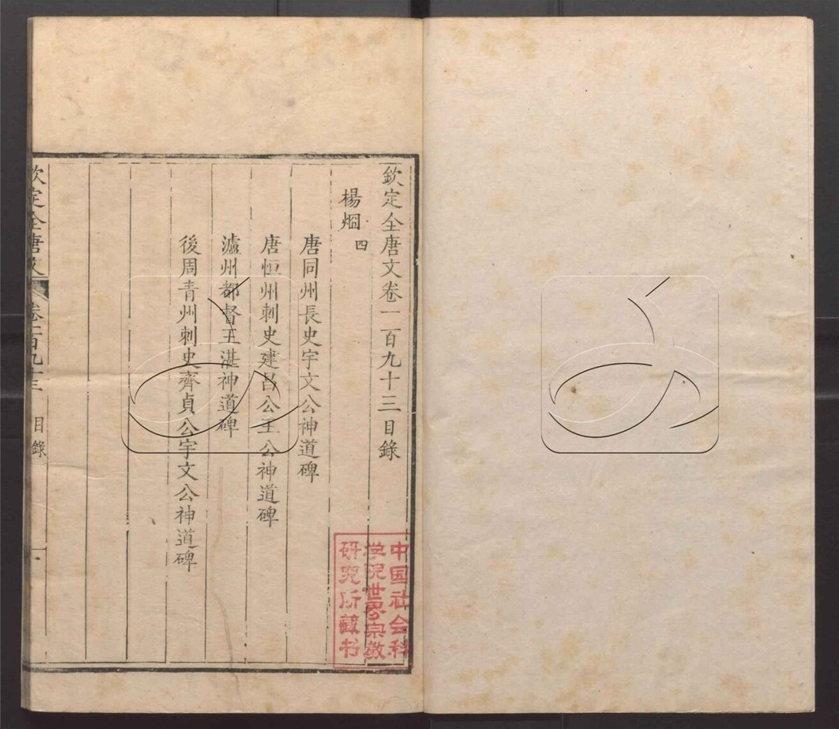 欽定全唐文卷一百九十三目錄
楊烱 四
唐同州長史宇文公神道碑
唐恒州刺史建昌公王公神道碑
瀘州都督王湛神道碑
後周青州刺史齊貞公宇文公神道碑
欽定全唐文 卷一百九十三 目錄 一
中国社会科
学院世界宗教
研究所藏书